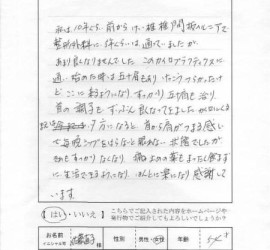 私は10年くらい前から けい椎椎間板ヘルニアで
整形外科に 1年くらいは 通っていましたが
あまり良くなりませんでした このカイロプラクティスに
通い始めた時は 五十肩もあり
ここに来るようになり すっかり 五十肩も治り
首の調子も ずいぶん 良くなってきました
夕方になると 首から肩がつまる感じ
で 毎晩 シップをはらなと眠れない 状態でしたが
それもすっかりなくなり 痛み止めの薬も まったく飲まず
に 生活できるようになり ほんとに楽になり 感謝して
います。
【はい・いいえ】
こちらでご記入された内容をホームページや
発行物でご紹介してもよろしいでしょうか?
お名前
イニシャル可
様
性別
男性・女性
年齢
才